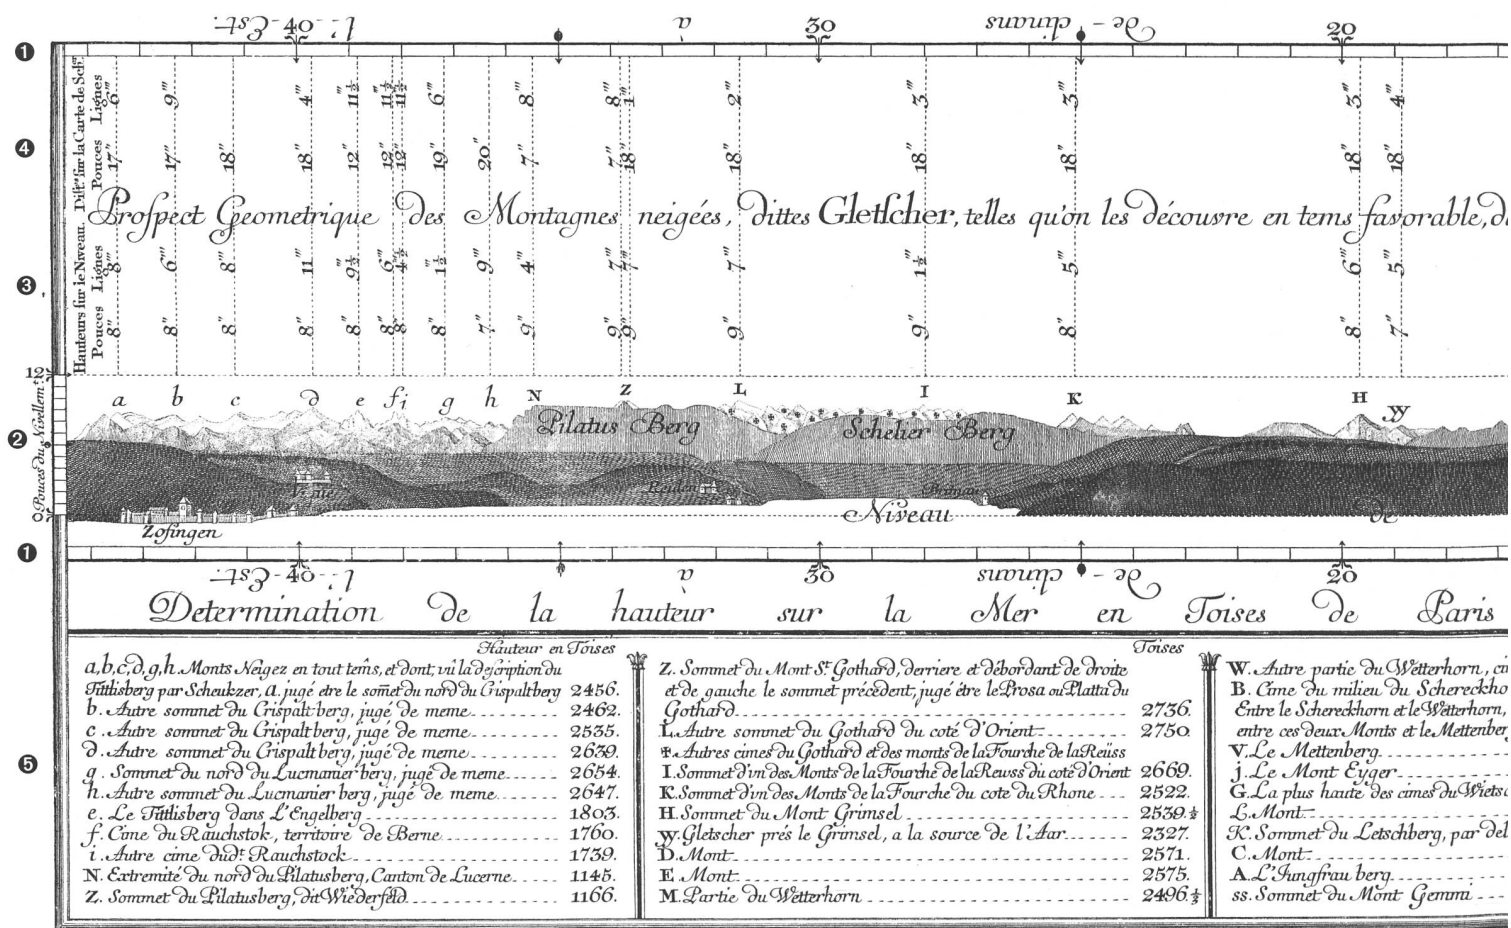 40 l'-Est. a 30 de-clinans 20
❶
Lignes 6''' 9''' 4''' 11½''' 11½''' 11½''' 6''' 8''' 8''' 1''' 2''' 3''' 3''' 3''' 4'''
❹
Dist.es sur la Carte de Sch.er
Pouces 17'' 17'' 18'' 18'' 12'' 12'' 12'' 19'' 20'' 7'' 7'' 18'' 18'' 18'' 18'' 18'' 18''
Prospect Geometrique des Montagnes neigées, dittes Gletscher, telles qu'on les découvre en tems favorable, d
Hauteurs sur le Niveau.
Lignes 8''' 6''' 8''' 11''' 9½''' 6''' 4½''' 1½''' 9''' 4''' 7''' 7''' 7''' 1½''' 5''' 6''' 5'''
❸
Pouces 8'' 8'' 8'' 8'' 8'' 8'' 8'' 8'' 7'' 9'' 9'' 9'' 9'' 9'' 8'' 8'' 7''
12
a b c d e f i g h N Z L I K H W
Pouces du Nivellem.t
❷
Pilatus Berg Schelier Berg
Reiden
0
Niveau de
Zofingen
❶
40 l'-Est. a 30 de-clinans 20
Determination de la hauteur sur la Mer en Toises de Paris
❺
Hauteur en Toises
a,b,c,d,g,h. Monts Neigez en tout tems, et dont, vû la description du
Tittlisberg par Scheukzer, a. jugé etre le somet du nord du Crispaltberg 2456.
b. Autre sommet du Crispalt berg, jugé de meme 2462.
c. Autre sommet du Crispalt berg, jugé de meme 2535.
d. Autre sommet du Crispalt berg, jugé de meme 2639.
g. Sommet du nord du Lucmanier berg, jugé de meme 2654.
h. Autre sommet du Lucmanier berg, jugé de meme 2647.
e. Le Tittlisberg dans L'Engelberg 1803.
f. Cime du Rauchstok, territoire de Berne 1760.
i. Autre cime dud.t Rauchstock 1739.
N. Extremité du nord du Pilatusberg, Canton de Lucerne 1145.
Z. Sommet du Pilatusberg, dit Wiederfeld 1166.
Toises
Z. Sommet du Mont S.t Gothard, derriere et débordant de droite
et de gauche le sommet précedent, jugé être le Prosa ou Platta du
Gothard 2736.
L. Autre sommet du Gothard du coté d'Orient 2750.
✠. Autres cimes du Gothard et des monts de la Fourche de la Reüss
I. Sommet d'un des Monts de la Fourche de la Reuss du coté d'Orient 2669.
K. Sommet d'un des Monts de la Fourche du cote du Rhone 2522.
H. Sommet du Mont Grimsel 2539.½
W. Gletscher prés le Grimsel, a la source de l'Aar 2327.
D. Mont 2571.
E. Mont 2575.
M. Partie du Wetterhorn 2496.⅓
W. Autre partie du Wetterhorn, ci
B. Cime du milieu du Schereckho
Entre le Schereckhorn et le Wetterhorn,
entre ces deux Monts et le Mettenber
V. Le Mettenberg
j. Le Mont Eyger
G. La plus haute des cimes du Wiets
L. Mont
K. Sommet du Letschberg, par de
C. Mont
A. L'Jungfrau berg
ss. Sommet du Mont Gemmi